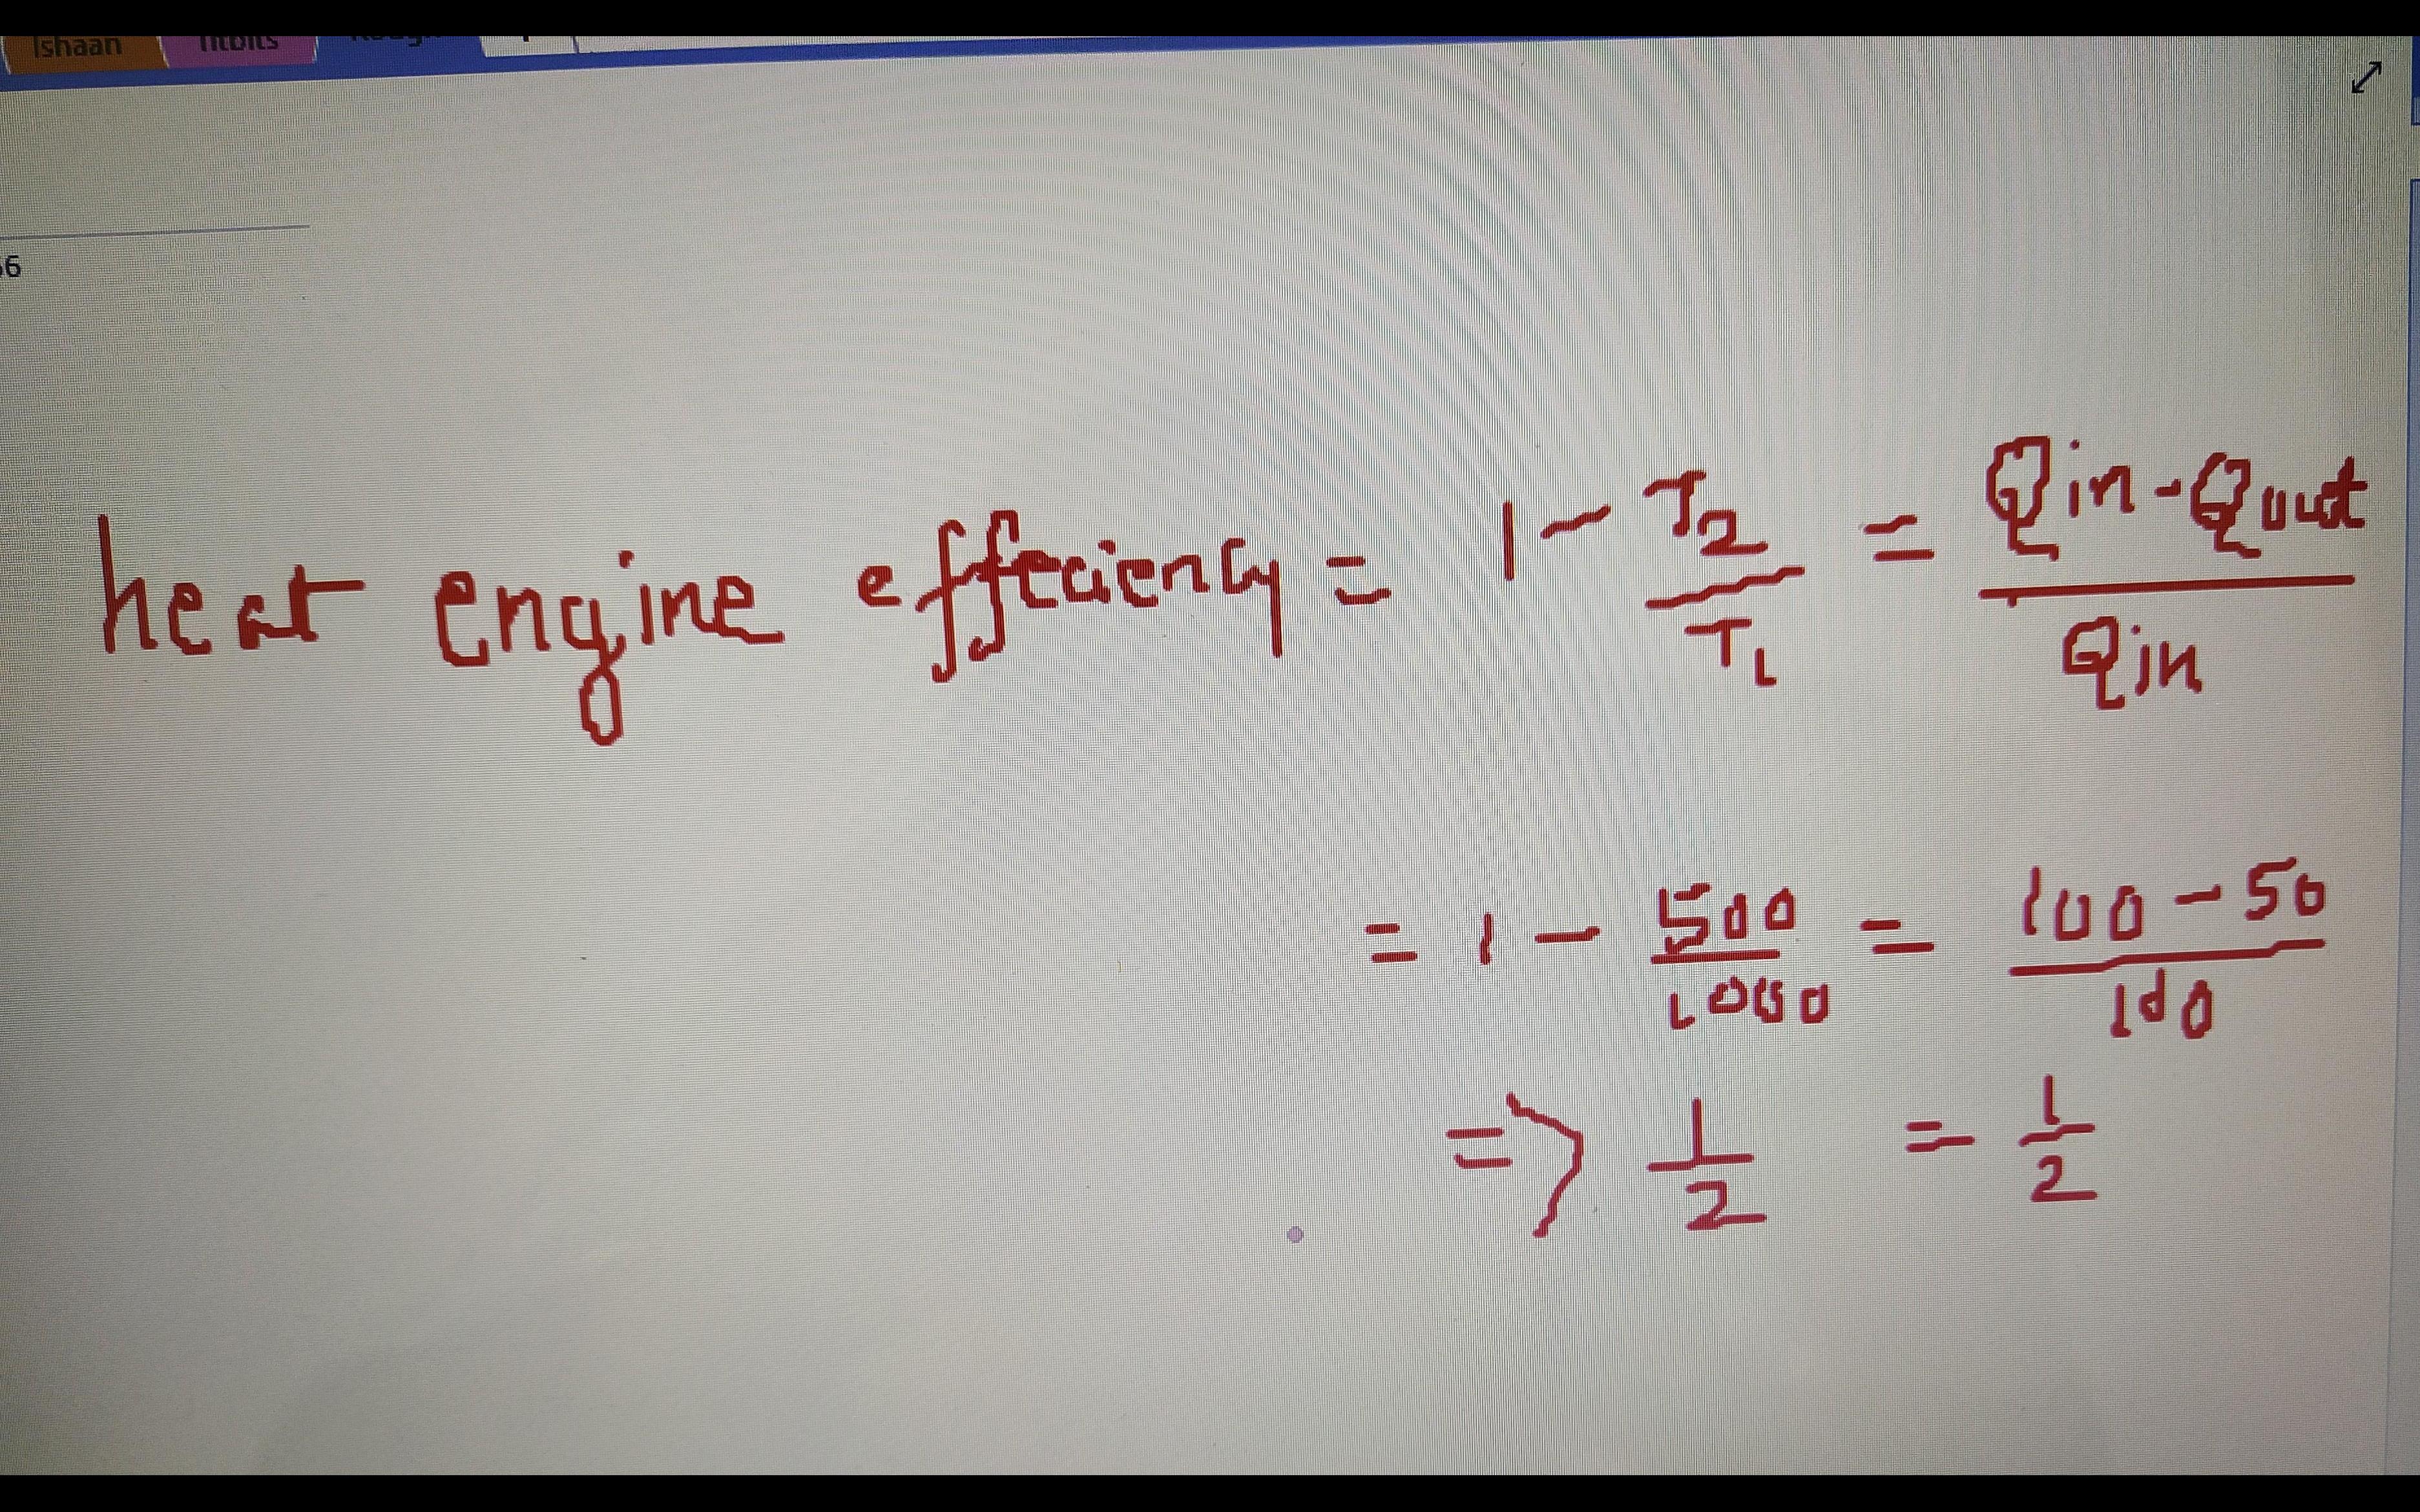 Ishaan Titbits
heat engine effeciency = 1 - T2/T1 = Qin - Qout/Qin
= 1 - 500/1000 = 100 - 50/100
=> 1/2 = 1/2